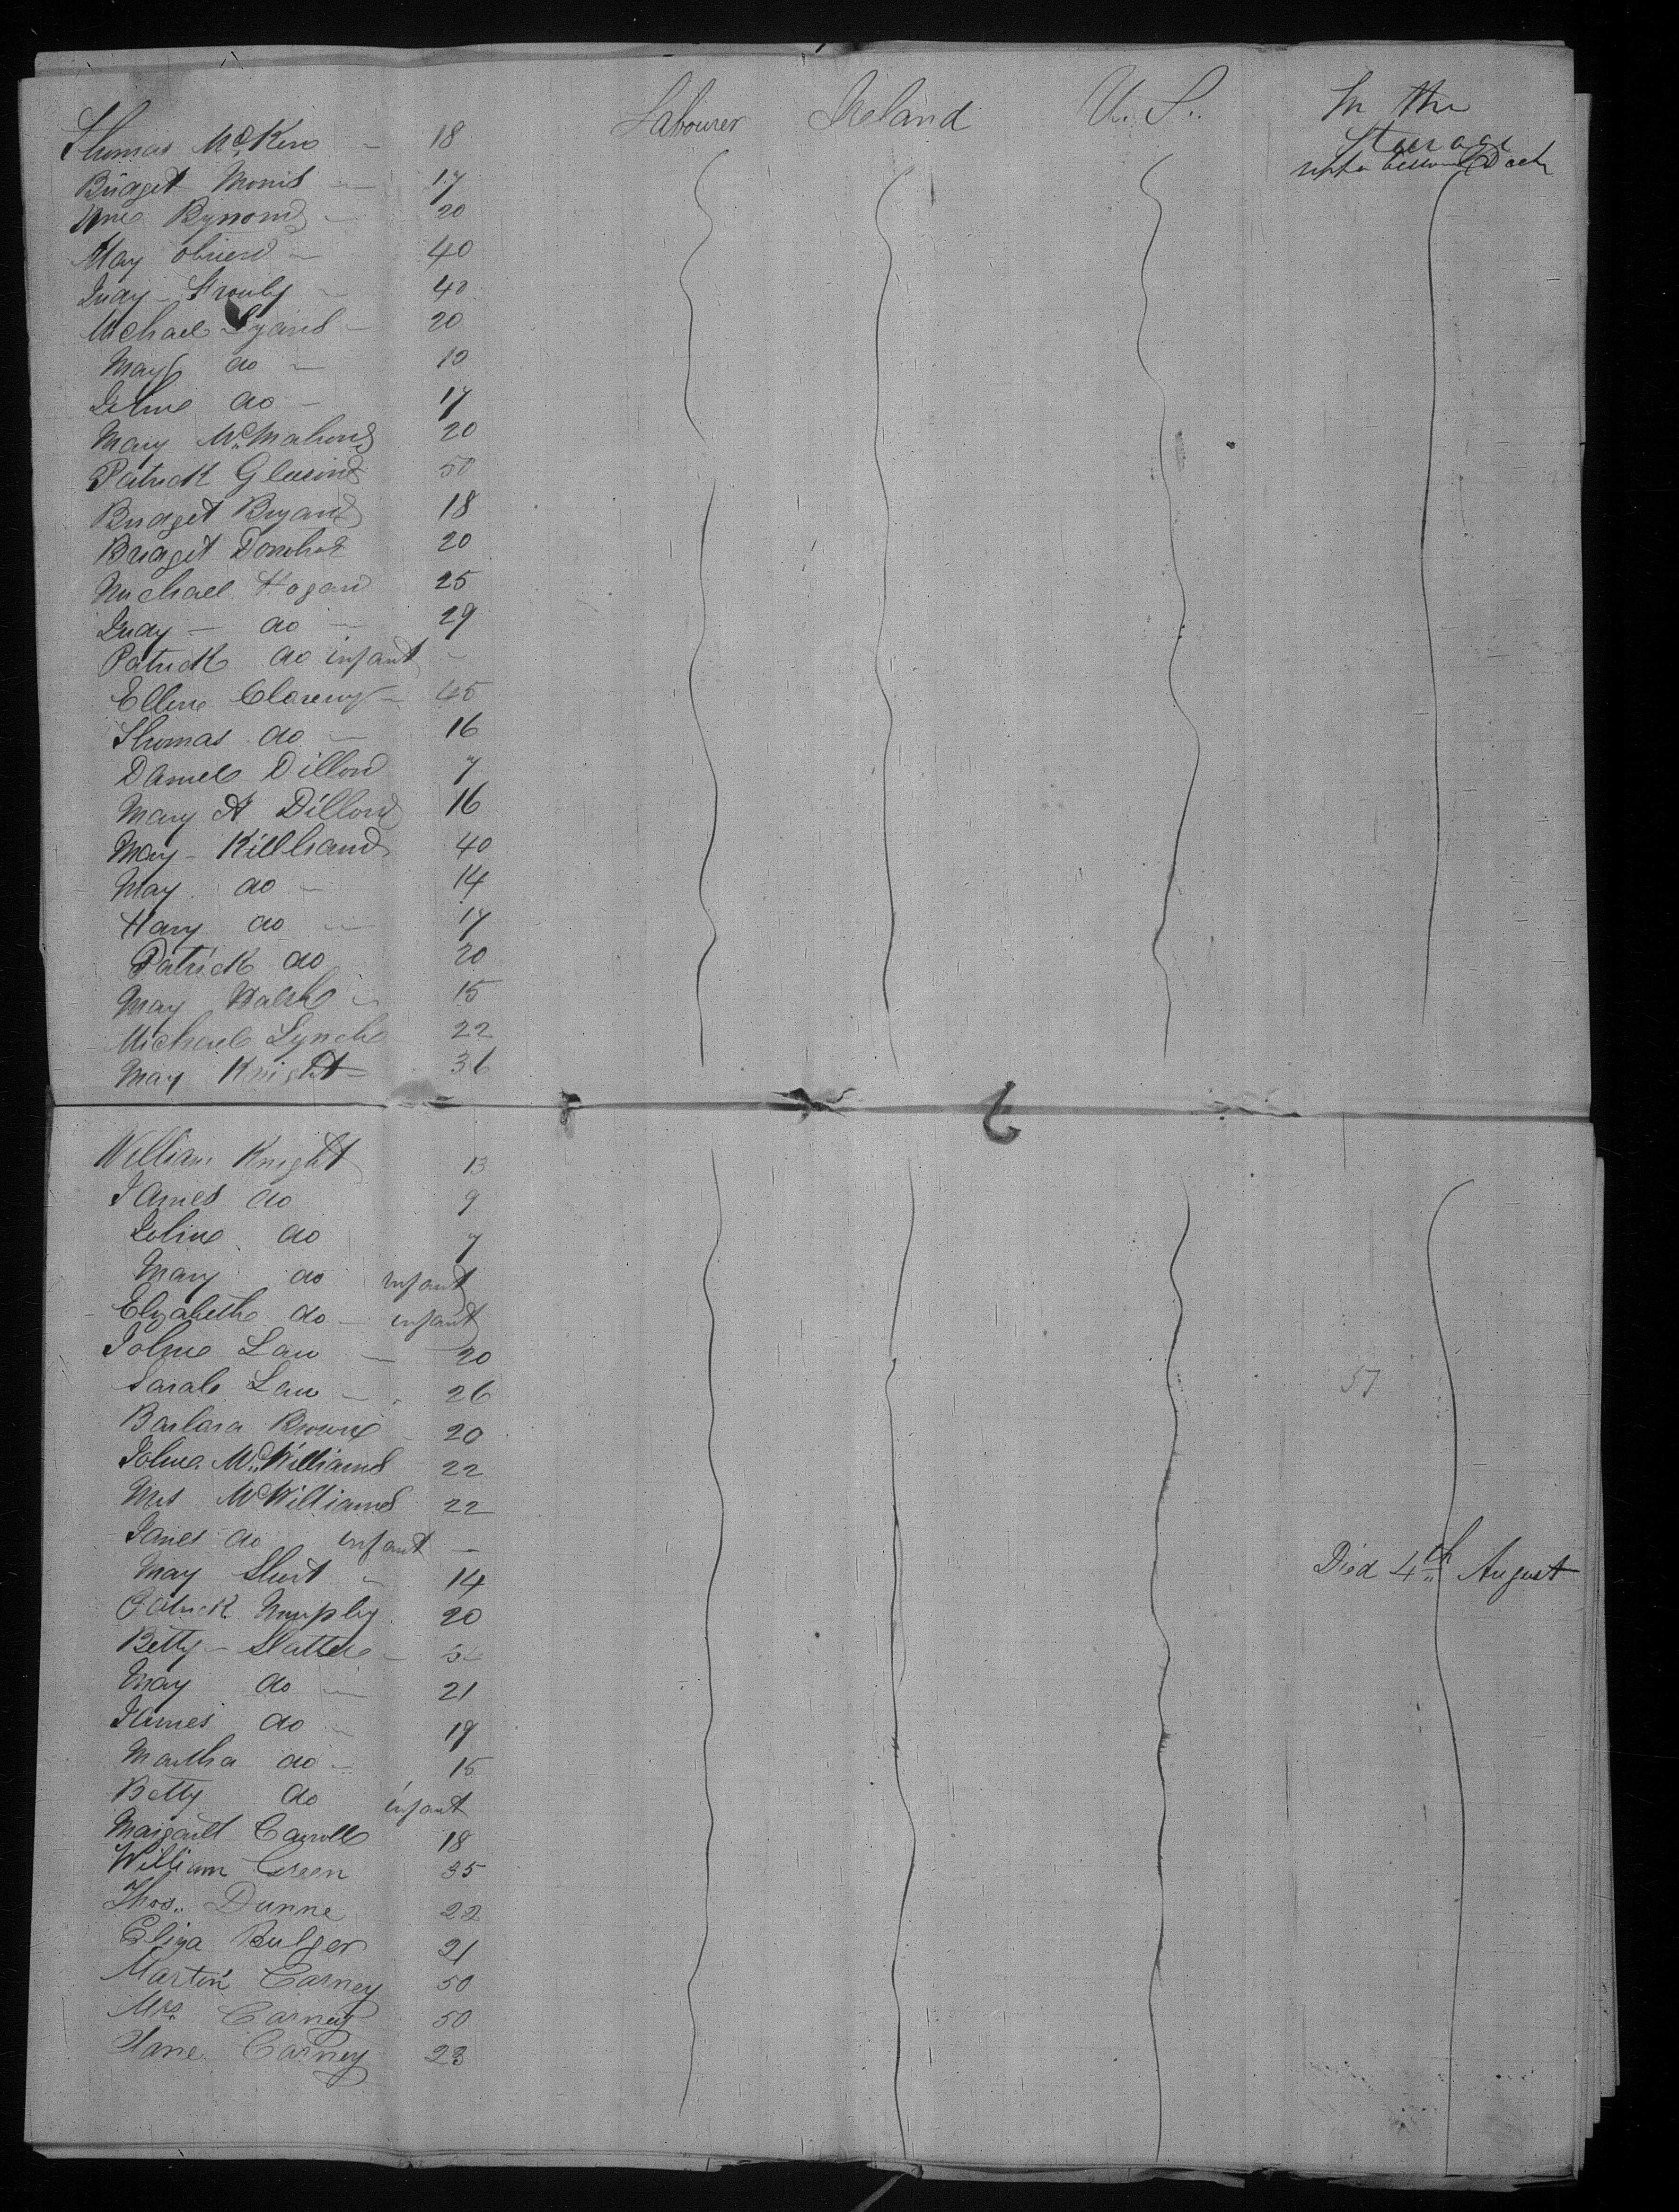 Labourer Ireland U. S. In the
Thomas McKen 18 Steerage
Bridget Morris 17
20
May Obrien 40
Judy 40
Michael Lyans 20
May do 10
John do 17
Mary McMahon 20
Patrick 50
Bridget Bryan 18
Bridget Donohoe 20
Michael Hogan 25
Judy do 29
Patrick do infant
Ellen Clarency 45
Thomas do 16
Daniel Dillon 7
Mary A Dillon 16
May Killhand 40
May do 14
Hary do 17
Patrick do 20
May Walsh 15
Michael Lynch 22
May Knight 36
William Knight 13
James do 9
John do 7
Mary do infant
Elizabeth do infant
John Law 20
Sarah Law 26
57
Barbara Brown 20
John McWilliams 22
Mrs McWilliams 22
James do infant Died 4th August
May Shut 14
Patrick Murphy 20
Betty Slatter
May do 21
James do 19
Martha do 15
Betty do infant
Margaret Carroll 18
William Green 35
Thos. Dunne 22
Eliza Bulger 21
Martin Carney 50
Mrs Carney 50
Jane Carney 23